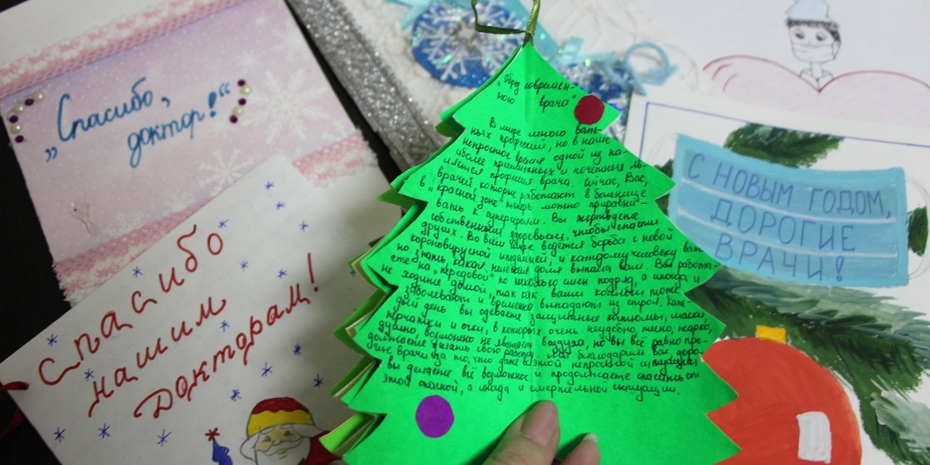 „Спасибо,
доктор!“
Спасибо
нашим
Докторам!
современ-
ного врача"
В мире много важ-
ных профессий, но в наше
непростое время одной из на-
иболее и почётных яв-
ляется профессия врача. Сейчас, Вас,
врачей, которые работают в больнице
в „красной зоне" можно приравни-
вать к супергероям. Вы жертвуете
собственным здоровьем, чтобы спасти
других. Во всём мире ведётся борьба с новой
коронавирусной и каждому человеку
но какая нелёгкая доля выпала вам. Вы работа-
ете на „передовой" по несколько смен подряд, а иногда и
не ходите домой, так как ваши коллеги тоже
заболевают и временно выпадают из строя. Каж-
дый день вы одеваете защитные костюмы, маски
перчатки и очки, в которых очень неудобно, жарко,
душно, но вы всё равно про-
должаете делать свою работу. благодарим вас, доро-
гие врачи за то, что даже в этой непростой ситуации
вы делаете всё возможное и продолжаете спасать от
этой опасной, а иногда и смертельной ситуации.
С НОВЫМ ГОДОМ,
ДОРОГИЕ
ВРАЧИ!